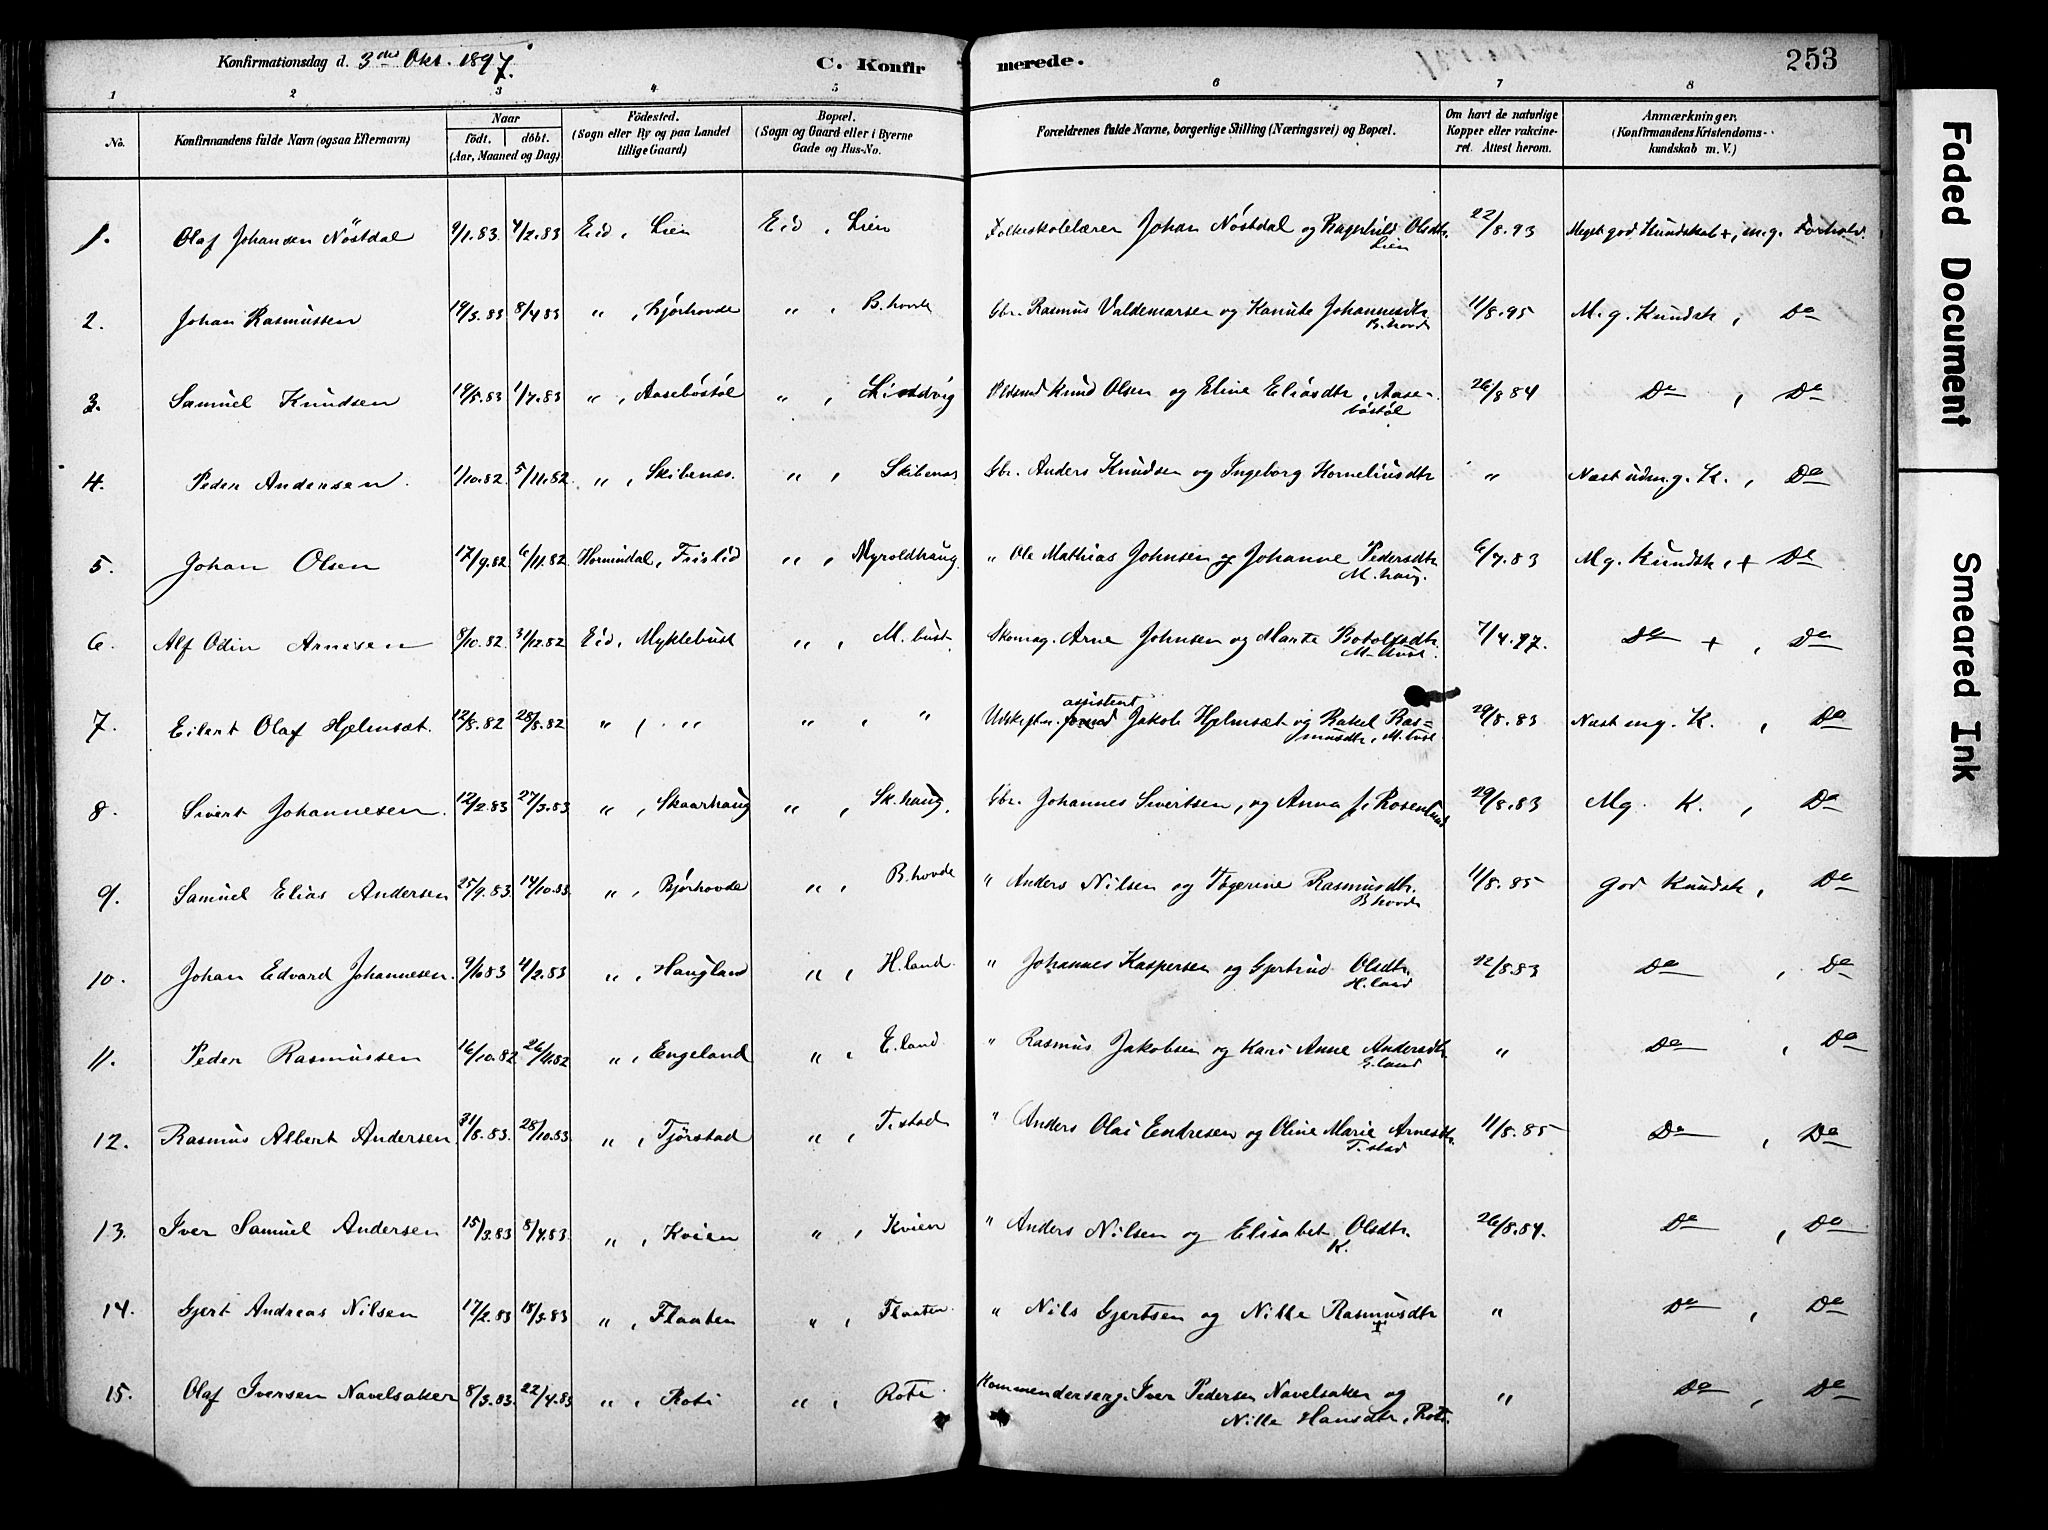 Konfirmationsdag d. 3die Okt. 1897. C. Konfirmerede. 253
1 2 3 4 5 6 7 8
No. Konfirmandens fulde Navn (ogsaa Efternavn) Naar Födt. döbt. (Aar, Maaned og Dag) Födested. (Sogn eller By og paa Landet tillige Gaard) Bopæl. (Sogn og Gaard eller i Byerne Gade og Hus-No. Forældrenes fulde Navne, borgerlige Stilling (Næringsvei) og Bopæl. Om havt de naturlige Kopper eller vakcineret. Attest herom. Anmærkninger. (Konfirmandens Kristendomskundskab m. V.)
1. Olaf Johansen Nöstdal 9/1.83 4/2.83 Eid, Lien Eid, Lien Folkeskolelærer Johan Nöstdal og Ragnhild Olsdtr. Lien 22/8.93 Meget god Kundskab +, m.g. Forhold.
2. Johan Rasmussen 19/3.83 8/4.83 " , Bjørhovde " , B.hovde Gbr. Rasmus Valdemarsen og Kanute Johannesdtr. B.hovd 11/8.95 M.g. Kundsk , Do
3. Samuel Knudsen 19/5.83 1/7.83 " , Aasebøstøl " , Knud Olsen og Eline Eliasdtr, Aasebøstøl 26/8 84 Do , Do
4. Peder Andersen. 1/10.82 5/11.82 " , Skibenæs. " , Skibenæs Gbr. Anders Knudsen og Ingeborg Korneliusdtr " Næst udm.g. K. , Do
5. Johan Olsen 17/9.82 6/11.82 Hornindal, Frislid " , Myroldhaug " Ole Mathias Johnsen og Johanne Pedersdtr M.haug. 6/7.83 Mg. Kundsk, + Do
6. Alf Odin Arnesen 8/10.82 31/12.82 Eid, Myklebust " , M.bust Skomag. Arne Johnsen og Marte Botolfsdtr. M.bust. 7/4.97. Do + , Do
7. Eilert Olaf Hjelmsæt. 12/8.82 28/8.82 " , " " , " Udskiftn. assistent Jakob Hjelmsæt og Rakel Rasmusdtr, M.bust. 29/8.83 Næst mg. K. , Do
8. Sivert Johannesen. 12/2.83 27/3.83 " , Skaarhaug " , Sk.haug. Gbr. Johannes Sivertsen, og Anna f. Rosenlund 29/8.83 Mg. K. , Do
9. Samuel Elias Andersen 25/9.83 14/10.83 " , Bjørhovde " , B.hovde " Anders Nilsen og Togerine Rasmusdtr. B.hovde 11/8.85 god Kundsk , Do
10. Johan Edvard Johannesen. 4/2.83 " , Haugland " , H.land. " Johannes Kaspersen og Gjertrud Olsdtr. H.land 22/8.83 Do , Do
11. Peder Rasmussen 16/10.82 26/11.82 " , Engeland " , E.land " Rasmus Jakobsen og Kari Anne Andersdtr E.land " Do , Do
12. Rasmus Albert Andersen 31/8.83. 28/10.83 " , Tjørstad " , T.stad " Anders Olai Endresen og Oline Marie Arnesdtr. T.stad 11/8.85 Do , Do
13. Iver Samuel Andersen 15/3.83 8/4.83 " , Kvien " , Kvien " Anders Nilsen og Elisabet Olsdtr. K. 26/8.84. Do , Do
14. Gjert Andreas Nilsen 17/2.83 18/3.83 " , Flaaten " , Flaaten " Nils Gjertsen og Nille Rasmusdtr " Do , Do
15. Olaf Iversen Navelsaker 8/3.83. 22/4.83 " , Roti " , Roti Kommanderserg. Iver Pedersen Navelsaker og Nille Hansdtr, Roti. " Do , Do
Faded Document
Smeared Ink